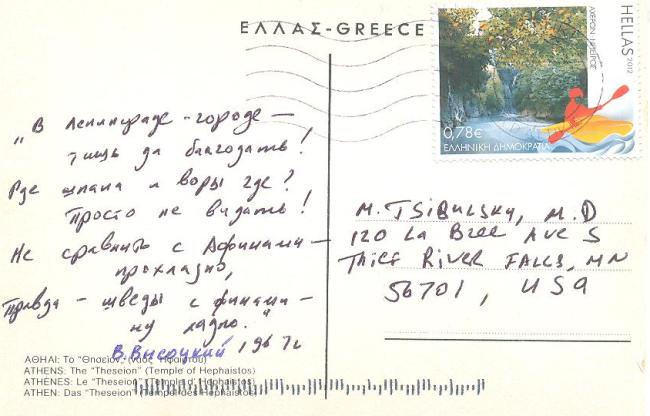 ΕΛΛΑΣ-GREECE
HELLAS 2012
ΑΧΕΡΩΝ ΗΠΕΙΡΟΣ
0,78€
ΕΛΛΗΝΙΚΗ ΔΗΜΟΚΡΑΤΙΑ
„В Ленинграде-городе —
тишь да благодать!
Где шпана и воры где?
Просто не видать!
Не сравнить с Афинами —
прохладно,
Правда — шведы с финами —
ну ладно."
В. Высоцкий, 1967г
M. TSIBULSKY, M.D
120 La Bree Ave S
Thief River Falls, MN
56701, USA
ΑΘΗΝΑΙ: Το "Θησείον" (Ναός Ηφαίστου)
ATHENS: The "Theseion" (Temple of Hephaistos)
ATHÈNES: Le "Theseion" (Temple d' Hephaistos)
ATHEN: Das "Theseion" (Tempel des Hephaistos)